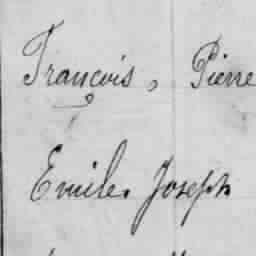 François, Pierre
Emile. Joseph